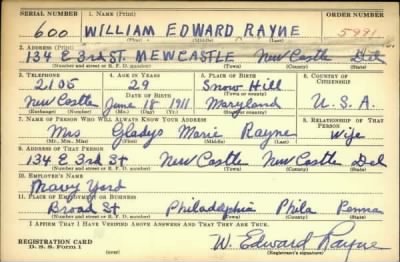 SERIAL NUMBER 1. NAME (Print) ORDER NUMBER
600 WILLIAM EDWARD RAYNE 5991
(First) (Middle) (Last)
2. ADDRESS (Print)
134 E 3rd ST. NEWCASTLE New Castle Del
(Number and street or R. F. D. number) (Town) (County) (State)
3. TELEPHONE 4. AGE IN YEARS 5. PLACE OF BIRTH 6. COUNTRY OF CITIZENSHIP
2105 29 Snow Hill
DATE OF BIRTH (Town or county)
New Castle June 18 1911 Maryland U.S.A.
(Exchange) (Number) (Mo.) (Day) (Yr.) (State or country)
7. NAME OF PERSON WHO WILL ALWAYS KNOW YOUR ADDRESS 8. RELATIONSHIP OF THAT PERSON
Mrs Gladys Marie Rayne Wife
(Mr., Mrs., Miss) (First) (Middle) (Last)
9. ADDRESS OF THAT PERSON
134 E 3rd St New Castle New Castle Del
(Number and street or R. F. D. number) (Town) (County) (State)
10. EMPLOYER'S NAME
Navy Yard
11. PLACE OF EMPLOYMENT OR BUSINESS
Broad St Philadelphia Phila Penna
(Number and street or R. F. D. number) (Town) (County) (State)
I AFFIRM THAT I HAVE VERIFIED ABOVE ANSWERS AND THAT THEY ARE TRUE.
REGISTRATION CARD W. Edward Rayne
D. S. S. Form 1 (over) (Registrant's signature)